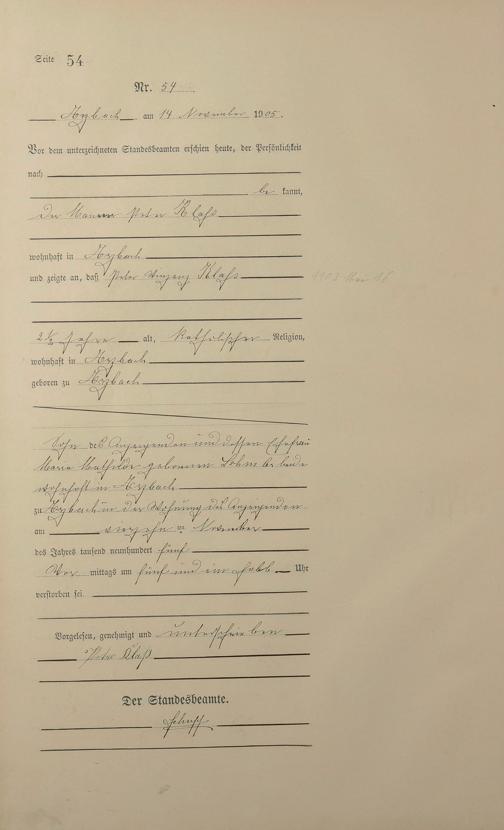 Seite 54
Nr. 54
Arzbach am 14 November 1905.
Vor dem unterzeichneten Standesbeamten erschien heute, der Persönlichkeit
nach
be kannt,
der Maurer Peter Klaß
wohnhaft in Arzbach
und zeigte an, daß Peter Vinzenz Klaß
2 1/2 Jahre alt, katholischer Religion,
wohnhaft in Arzbach
geboren zu Arzbach
Sohn des Anzeigenden und dessen Ehefrau
Maria Mathilde geborenen beide
wohnhaft in Arzbach
zu Arzbach in der Wohnung des Anzeigenden
am vierzehn November
des Jahres tausend neunhundert fünf
Vor mittags um fünf und ein halb Uhr
verstorben sei.
Vorgelesen, genehmigt und unterschrieben
Peter Klaß
Der Standesbeamte.